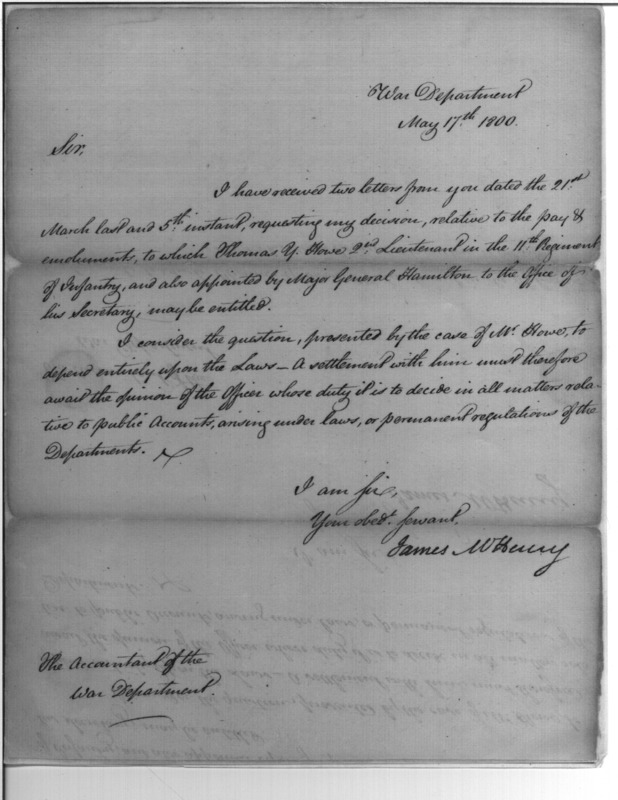 War Department
May 17.th 1800.
Sir,
I have received two letters from you dated the 21.st
March last and 5.th instant, requesting my decision, relative to the pay &
emoluments, to which Thomas Y. Howe 2.nd Lieutenant in the 11.th Regiment
of Infantry, and also appointed by Major General Hamilton to the Office of
his Secretary, may be entitled.
I consider the question, presented by the case of Mr. Howe, to
depend entirely upon the Laws — A settlement with him must therefore
await the opinion of the Officer whose duty it is to decide in all matters rela-
tive to public Accounts, arising under laws, or permanent regulations of the
Departments.
I am Sir,
Your obedt. servant.
James McHenry
The Accountant of the
War Department.